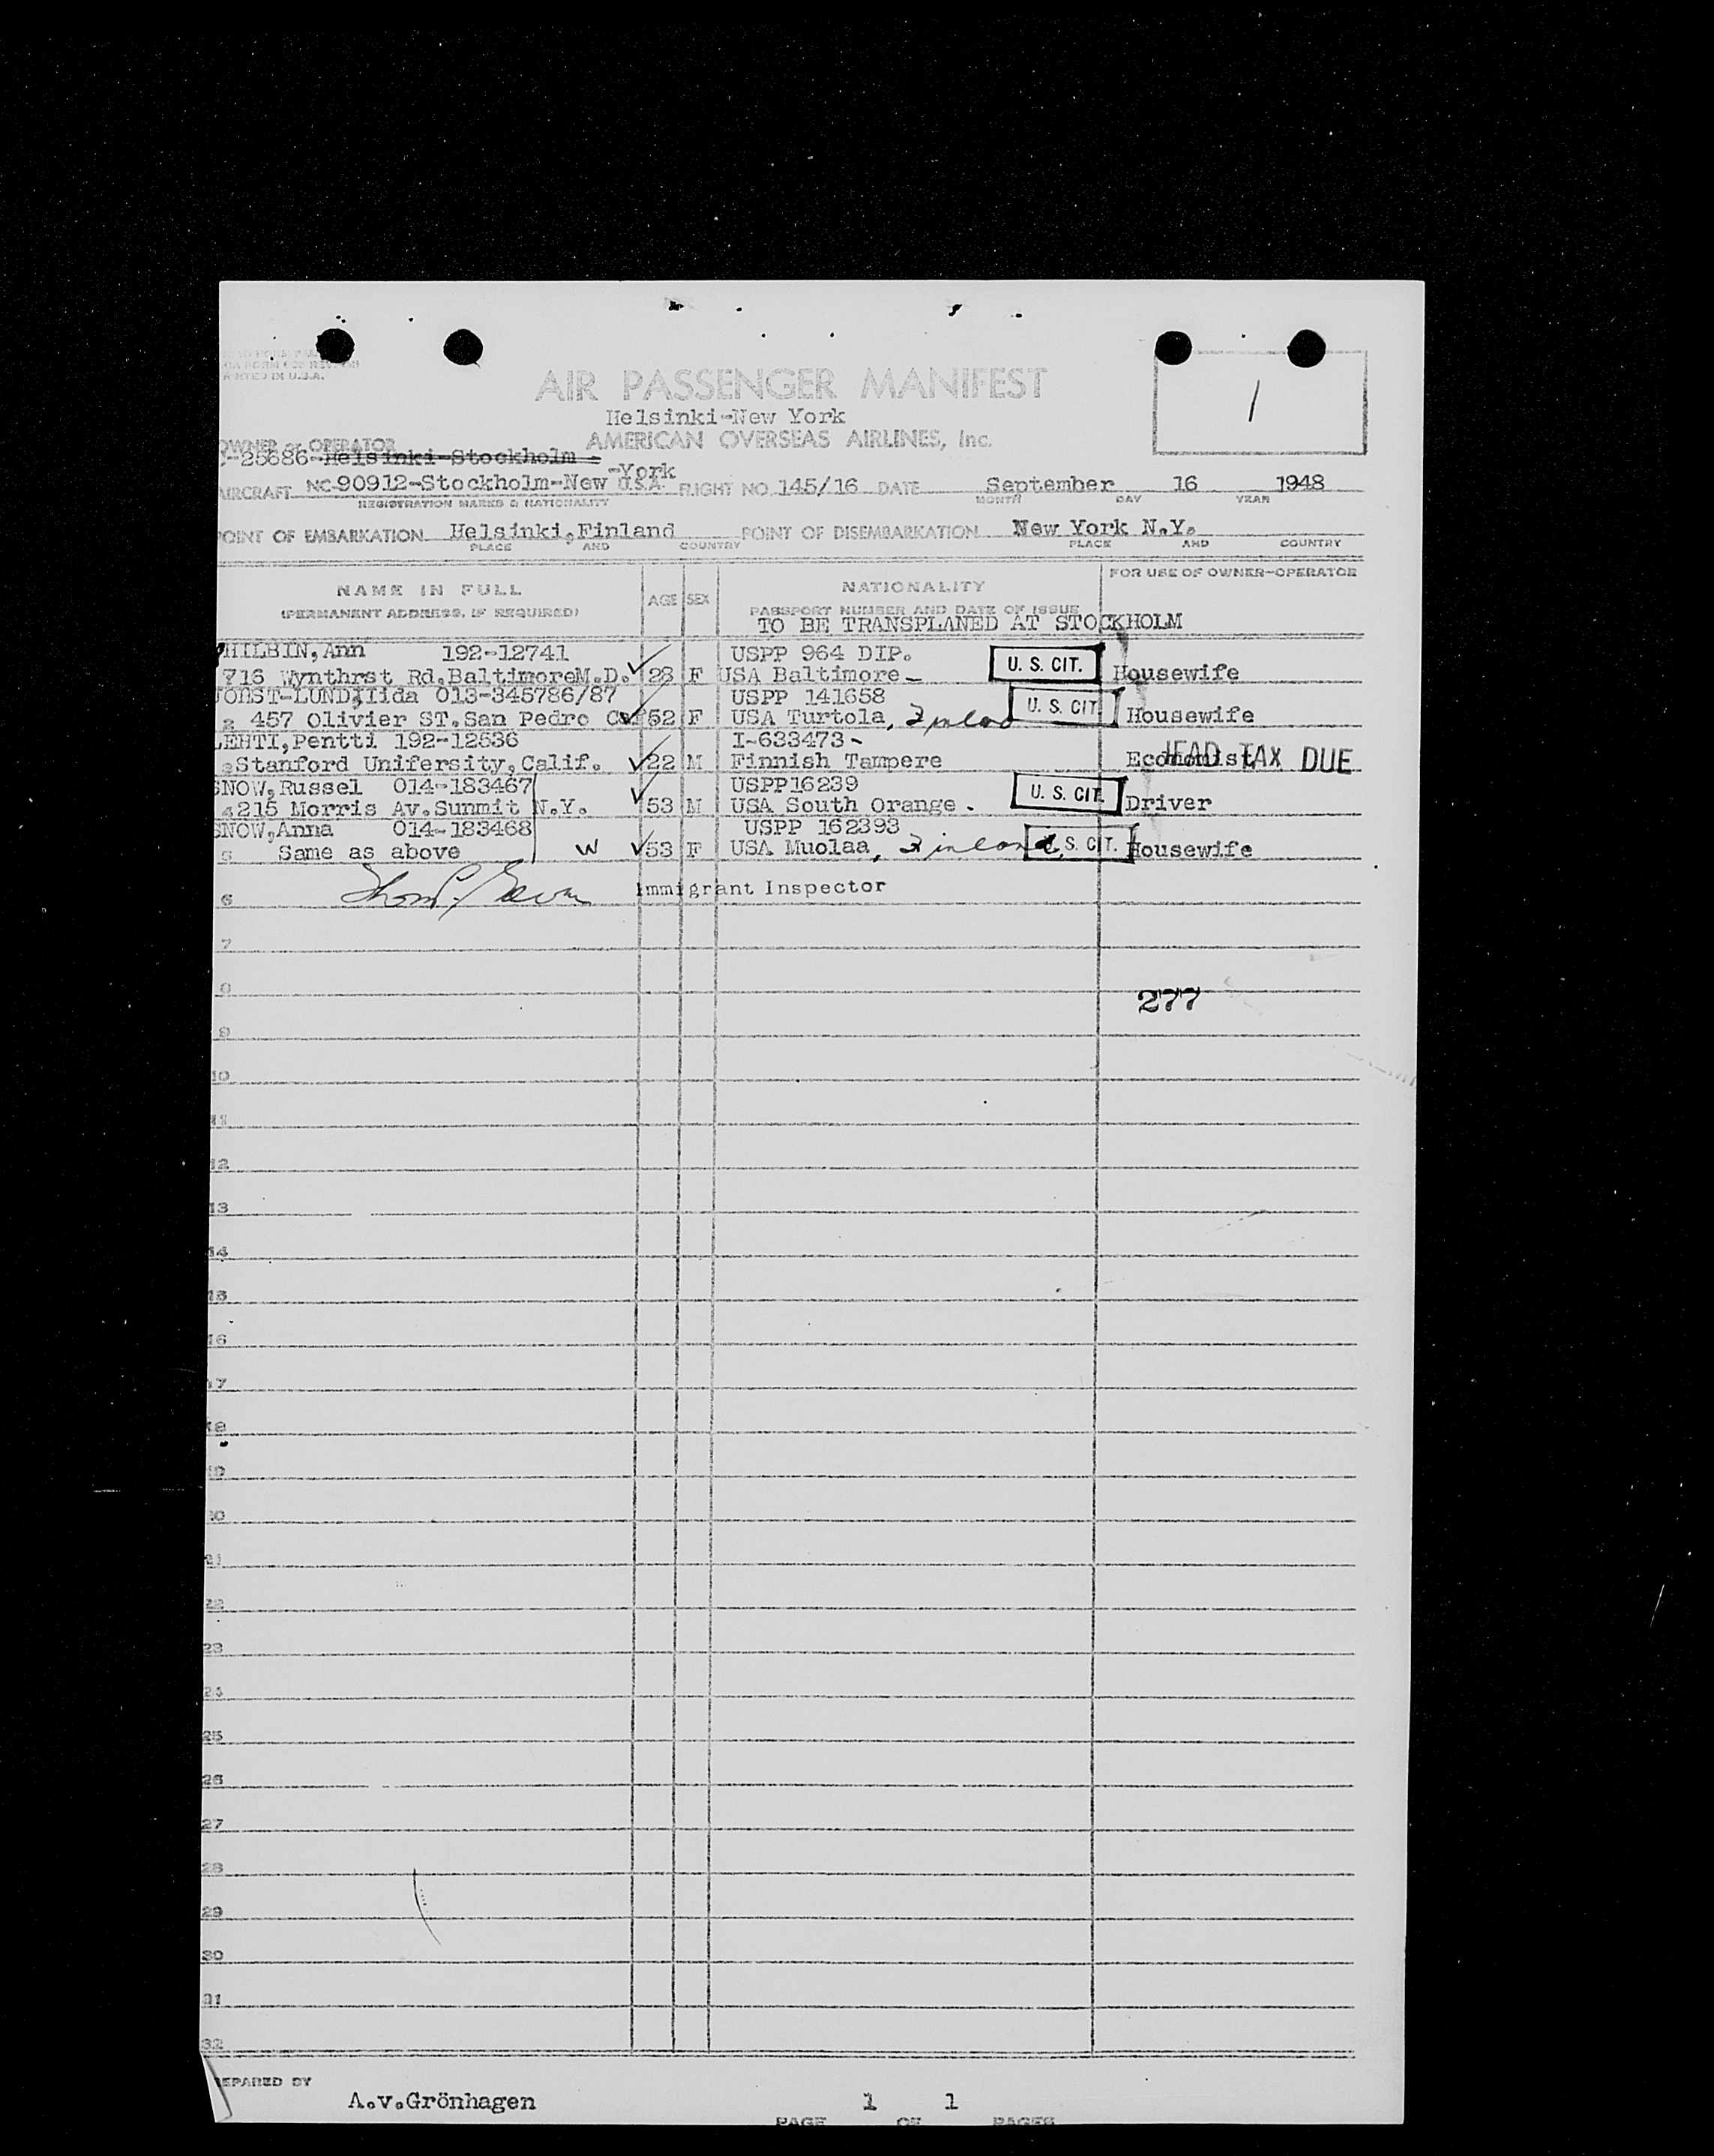 PRINTED IN U.S.A.
1
AIR PASSENGER MANIFEST
Helsinki-New York
OWNER or OPERATOR AMERICAN OVERSEAS AIRLINES, Inc.
-28686-Helsinki-Stockholm -
-York
AIRCRAFT NC-90912-Stockholm-New U.S.A. FLIGHT NO. 145/16 DATE September 16 1948
REGISTRATION MARKS & NATIONALITY MONTH DAY YEAR
POINT OF EMBARKATION Helsinki,Finland POINT OF DISEMBARKATION New York N.Y.
PLACE AND COUNTRY PLACE AND COUNTRY
NAME IN FULL AGE SEX NATIONALITY FOR USE OF OWNER-OPERATOR
(PERMANENT ADDRESS, IF REQUIRED) PASSPORT NUMBER AND DATE OF ISSUE
TO BE TRANSPLANED AT STOCKHOLM
HILBIN,Ann 192-12741 USPP 964 DIP.
716 Wynthrst Rd.BaltimoreM.D. 28 F USA Baltimore U. S. CIT. Housewife
JOBST-LUND,Iida 013-345786/87 USPP 141658
2 457 Olivier ST.San Pedro 52 F USA Turtola, Finland U. S. CIT. Housewife
LEHTI,Pentti 192-12536 I-633473-
3 Stanford Unifersity,Calif. 22 M Finnish Tampere Economist HEAD TAX DUE
SNOW,Russel 014-183467 USPP16239
4 215 Morris Av.Summit N.Y. 53 M USA South Orange . U. S. CIT. Driver
SNOW,Anna 014-183468 USPP 162393
5 Same as above W 53 F USA Muolaa, Finland U. S. CIT. Housewife
6 Immigrant Inspector
7
8 277
9
10
11
12
13
14
15
16
17
18
19
20
21
22
23
24
25
26
27
28
29
30
31
32
PREPARED BY
A.v.Grönhagen 1 1
PAGE OF PAGES